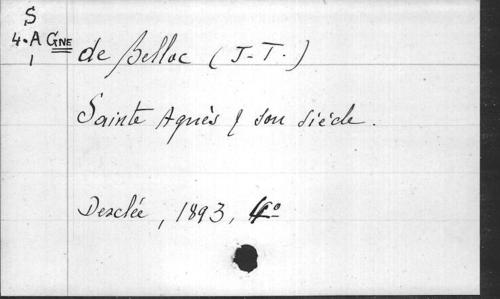 S
4.A GNE
1
de Belloc (J-T.)
Sainte Agnès & son siècle.
Desclée, 1893, 4º